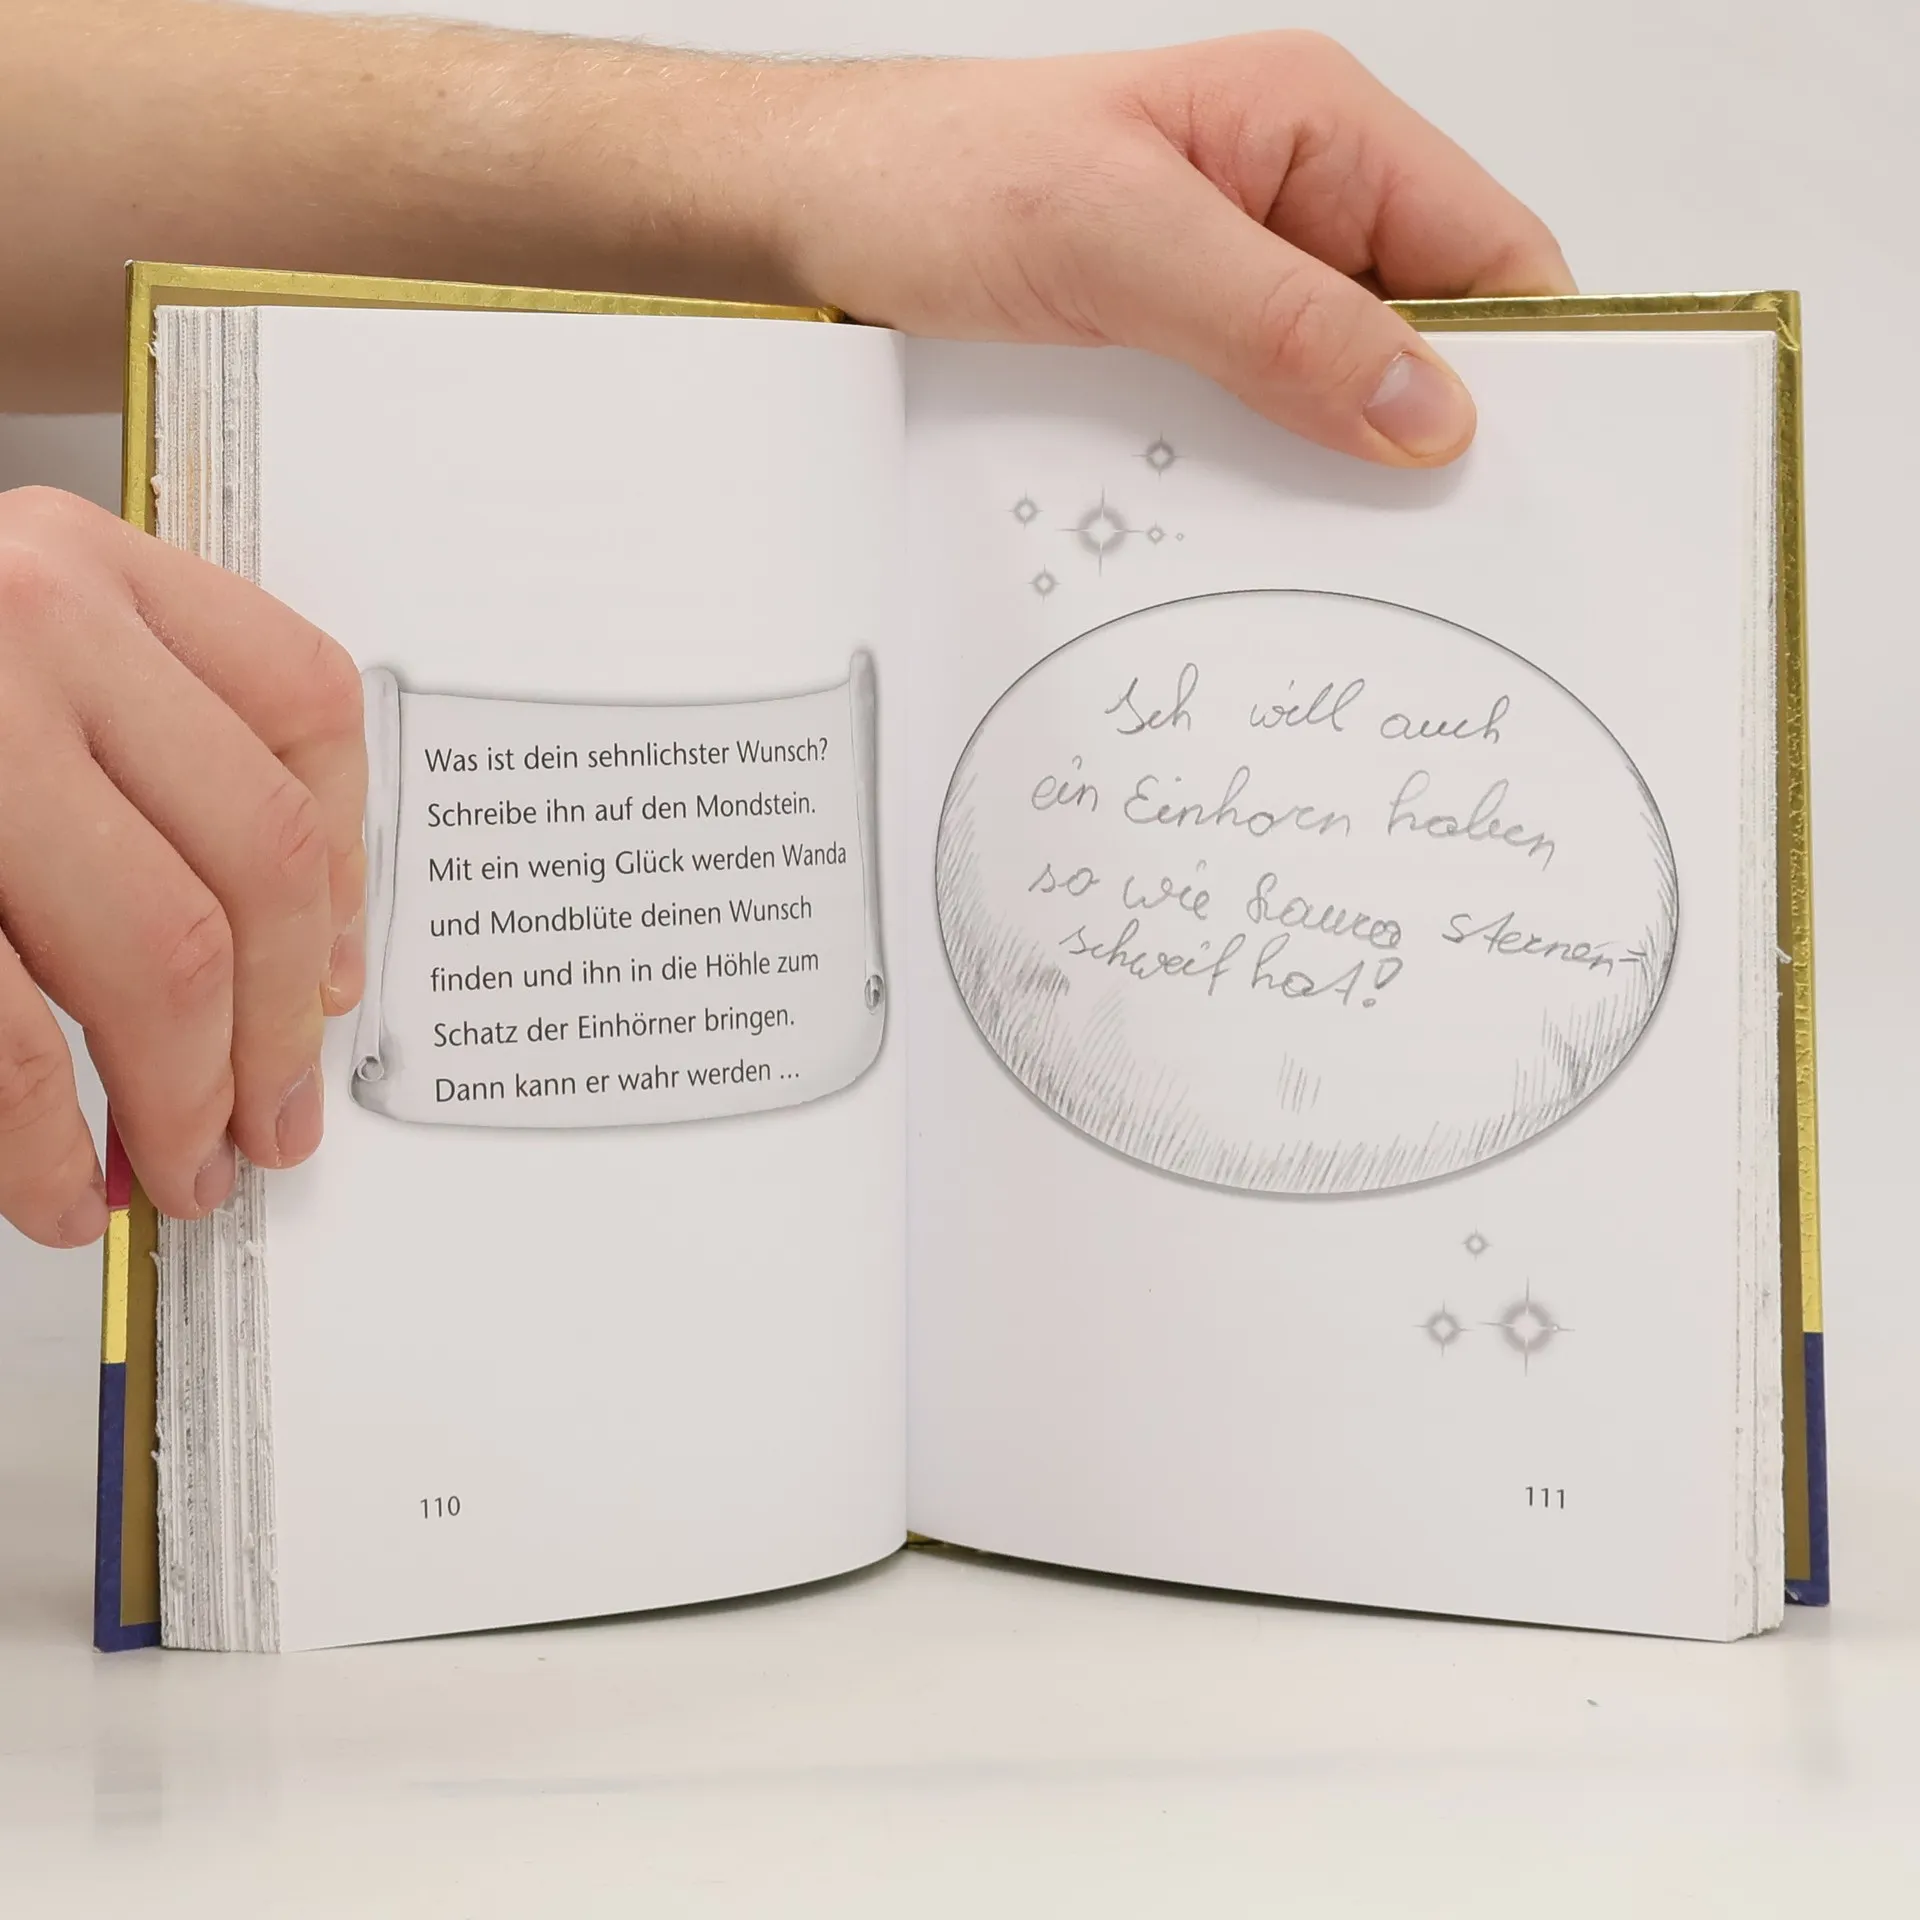 Was ist dein sehnlichster Wunsch?
Schreibe ihn auf den Mondstein.
Mit ein wenig Glück werden Wanda
und Mondblüte deinen Wunsch
finden und ihn in die Höhle zum
Schatz der Einhörner bringen.
Dann kann er wahr werden ...
110
Ich will auch
ein Einhorn haben
so wie Laura Sternen-
schweif hat!
111